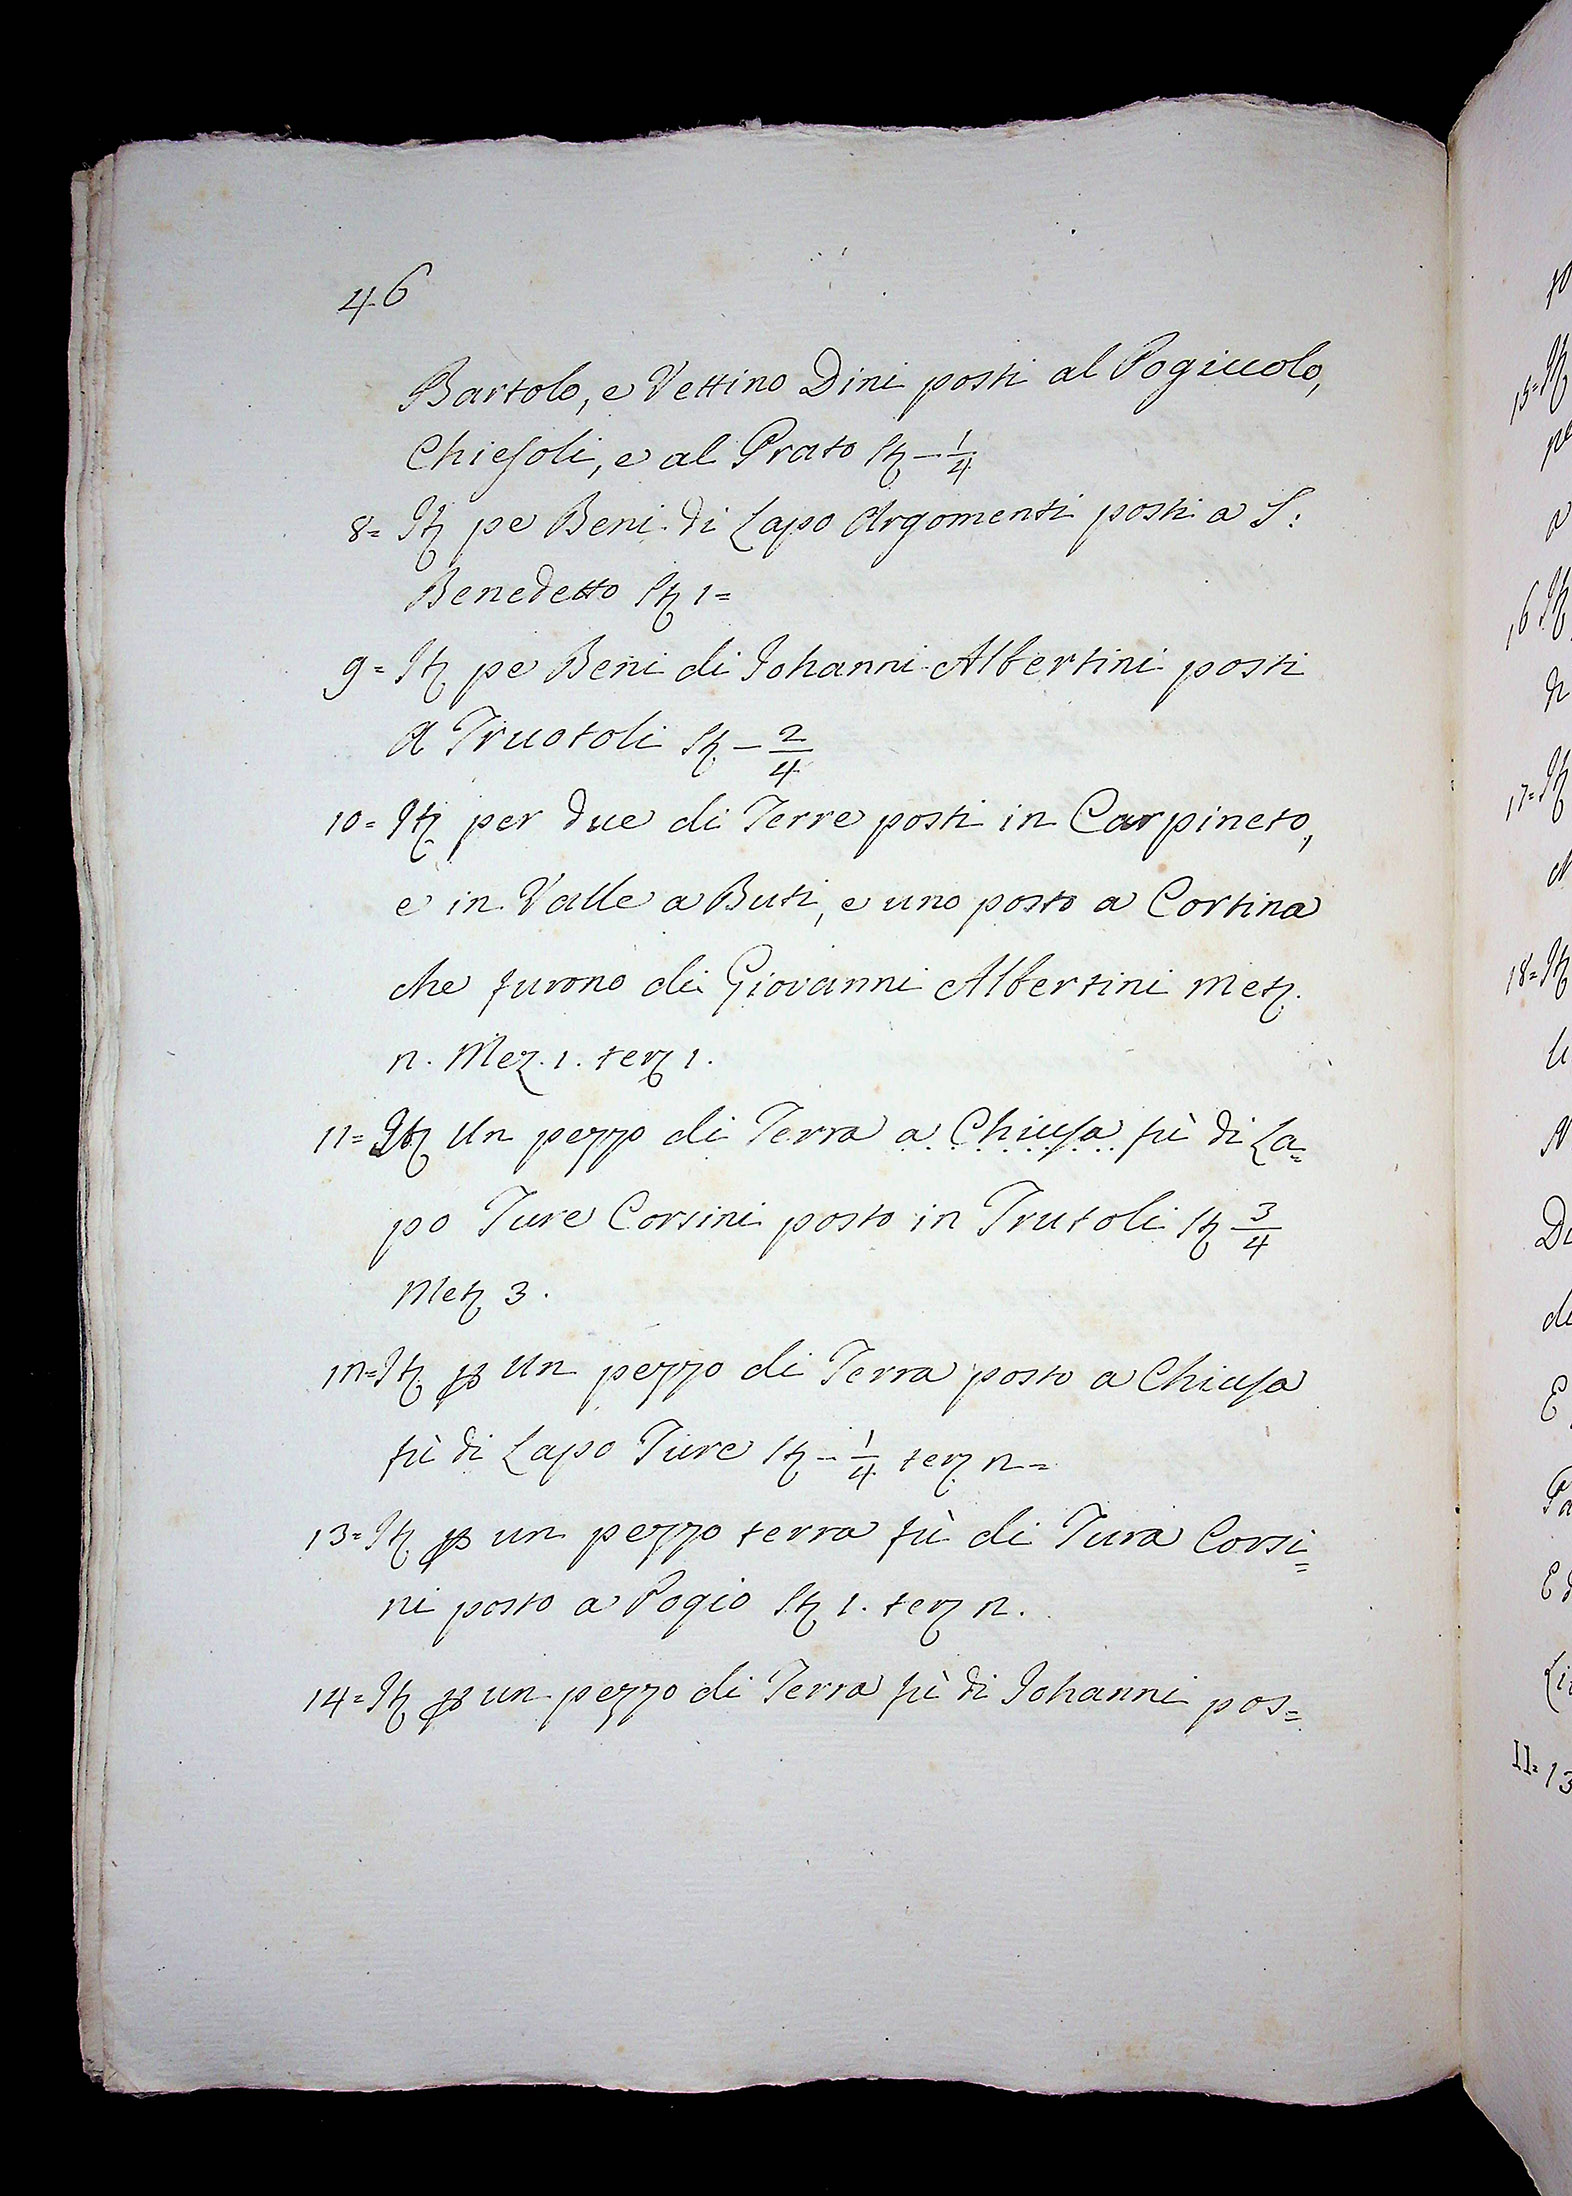 46
Bartolo, e Vettino Dini posti al Pogiuolo,
Chiesoli, e al Prato St — 1/4
8= It pe Beni di Lapo Argomenti posti a S:
Benedetto St 1=
9= It pe Beni di Johanni Albertini posti
a Truotoli St — 2/4
10= It per due di Terre posti in Carpineto,
e in Valle a Buti, e uno posto a Cortina
che furono di Giovanni Albertini Met.
n. Mez. 1. terz 1.
11= It Un pezzo di Terra a Chiusa fù di La=
po Ture Corsini posto in Trutoli St 3/4
Met 3.
1n= It p Un pezzo di Terra posto a Chiusa
fù di Lapo Ture St — 1/4 terz n=
13= It p un pezzo terra fù di Tura Corsi=
ni posto a Pogio St 1. terz n.
14= It p un pezzo di Terra fù di Johanni pos=
15= It
16 It
17= It
18= It